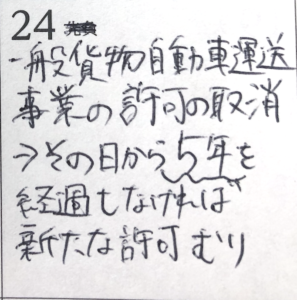 24
一般貨物自動車運送
事業の許可の取消
→その日から5年を
経過しなければ
新たな許可むり